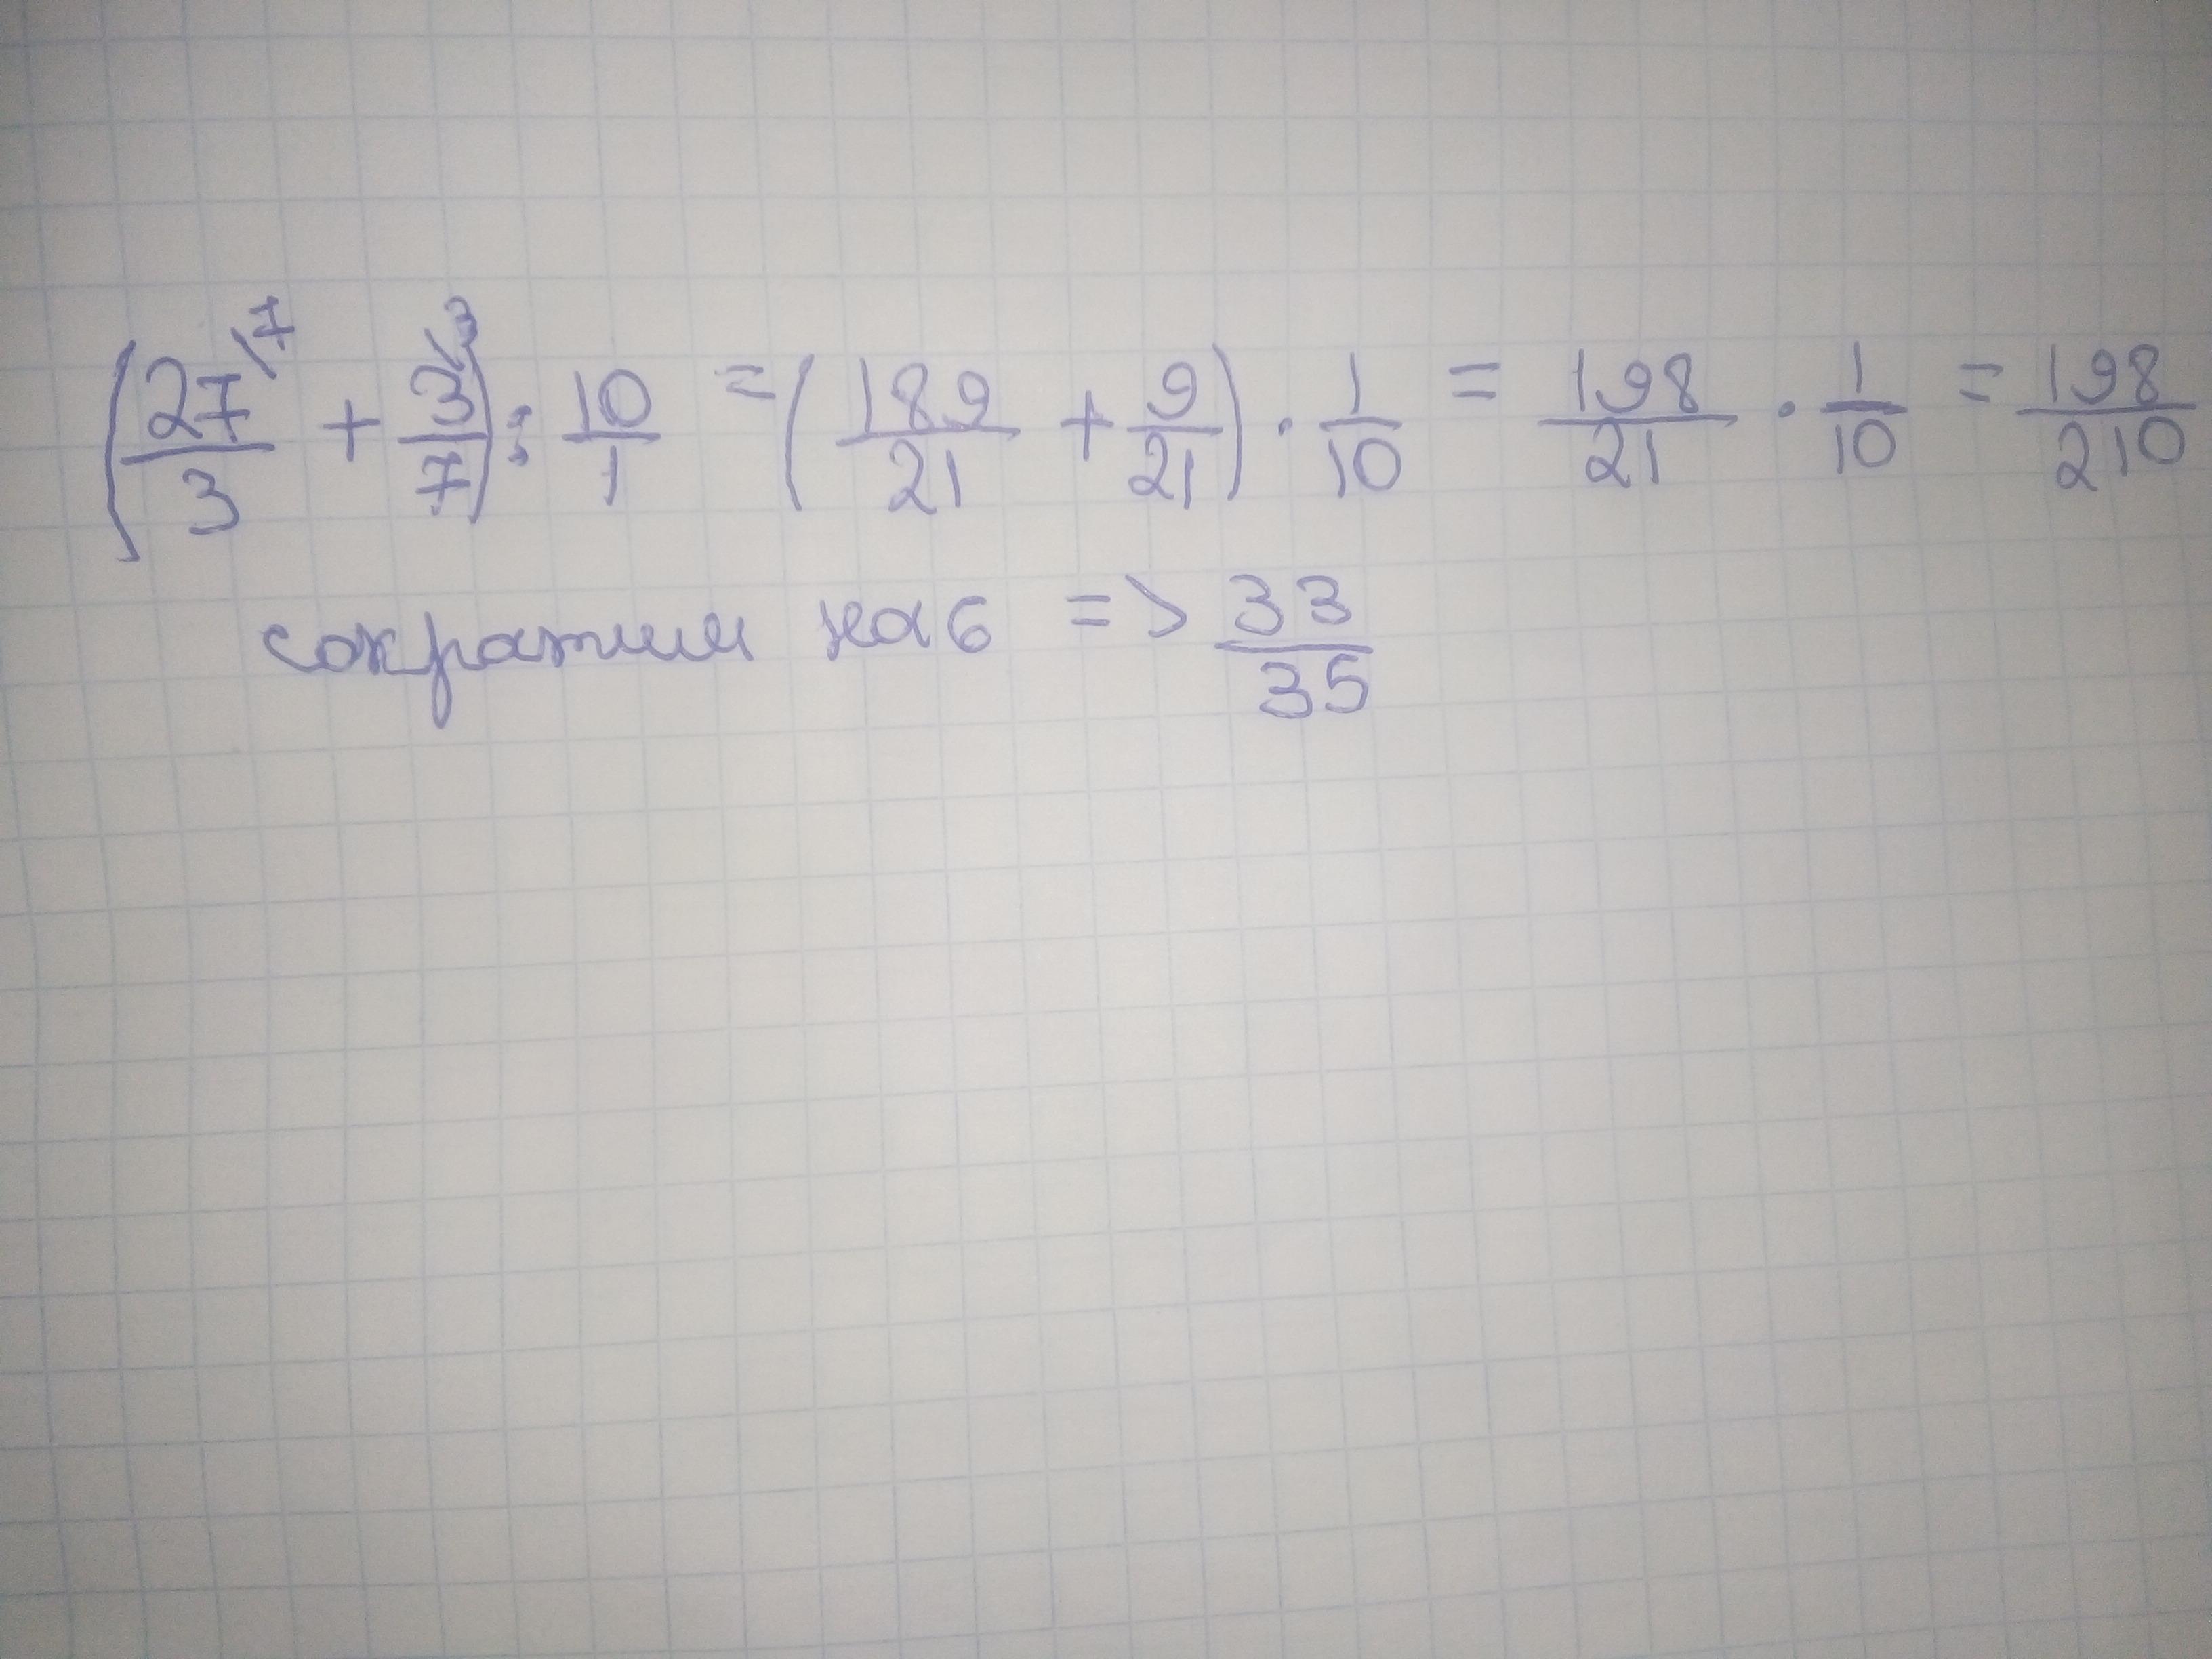 (27/3 ⁷ + 3/7 ³) : 10/1 = (189/21 + 9/21) · 1/10 = 198/21 · 1/10 = 198/210
сократим на 6 => 33/35